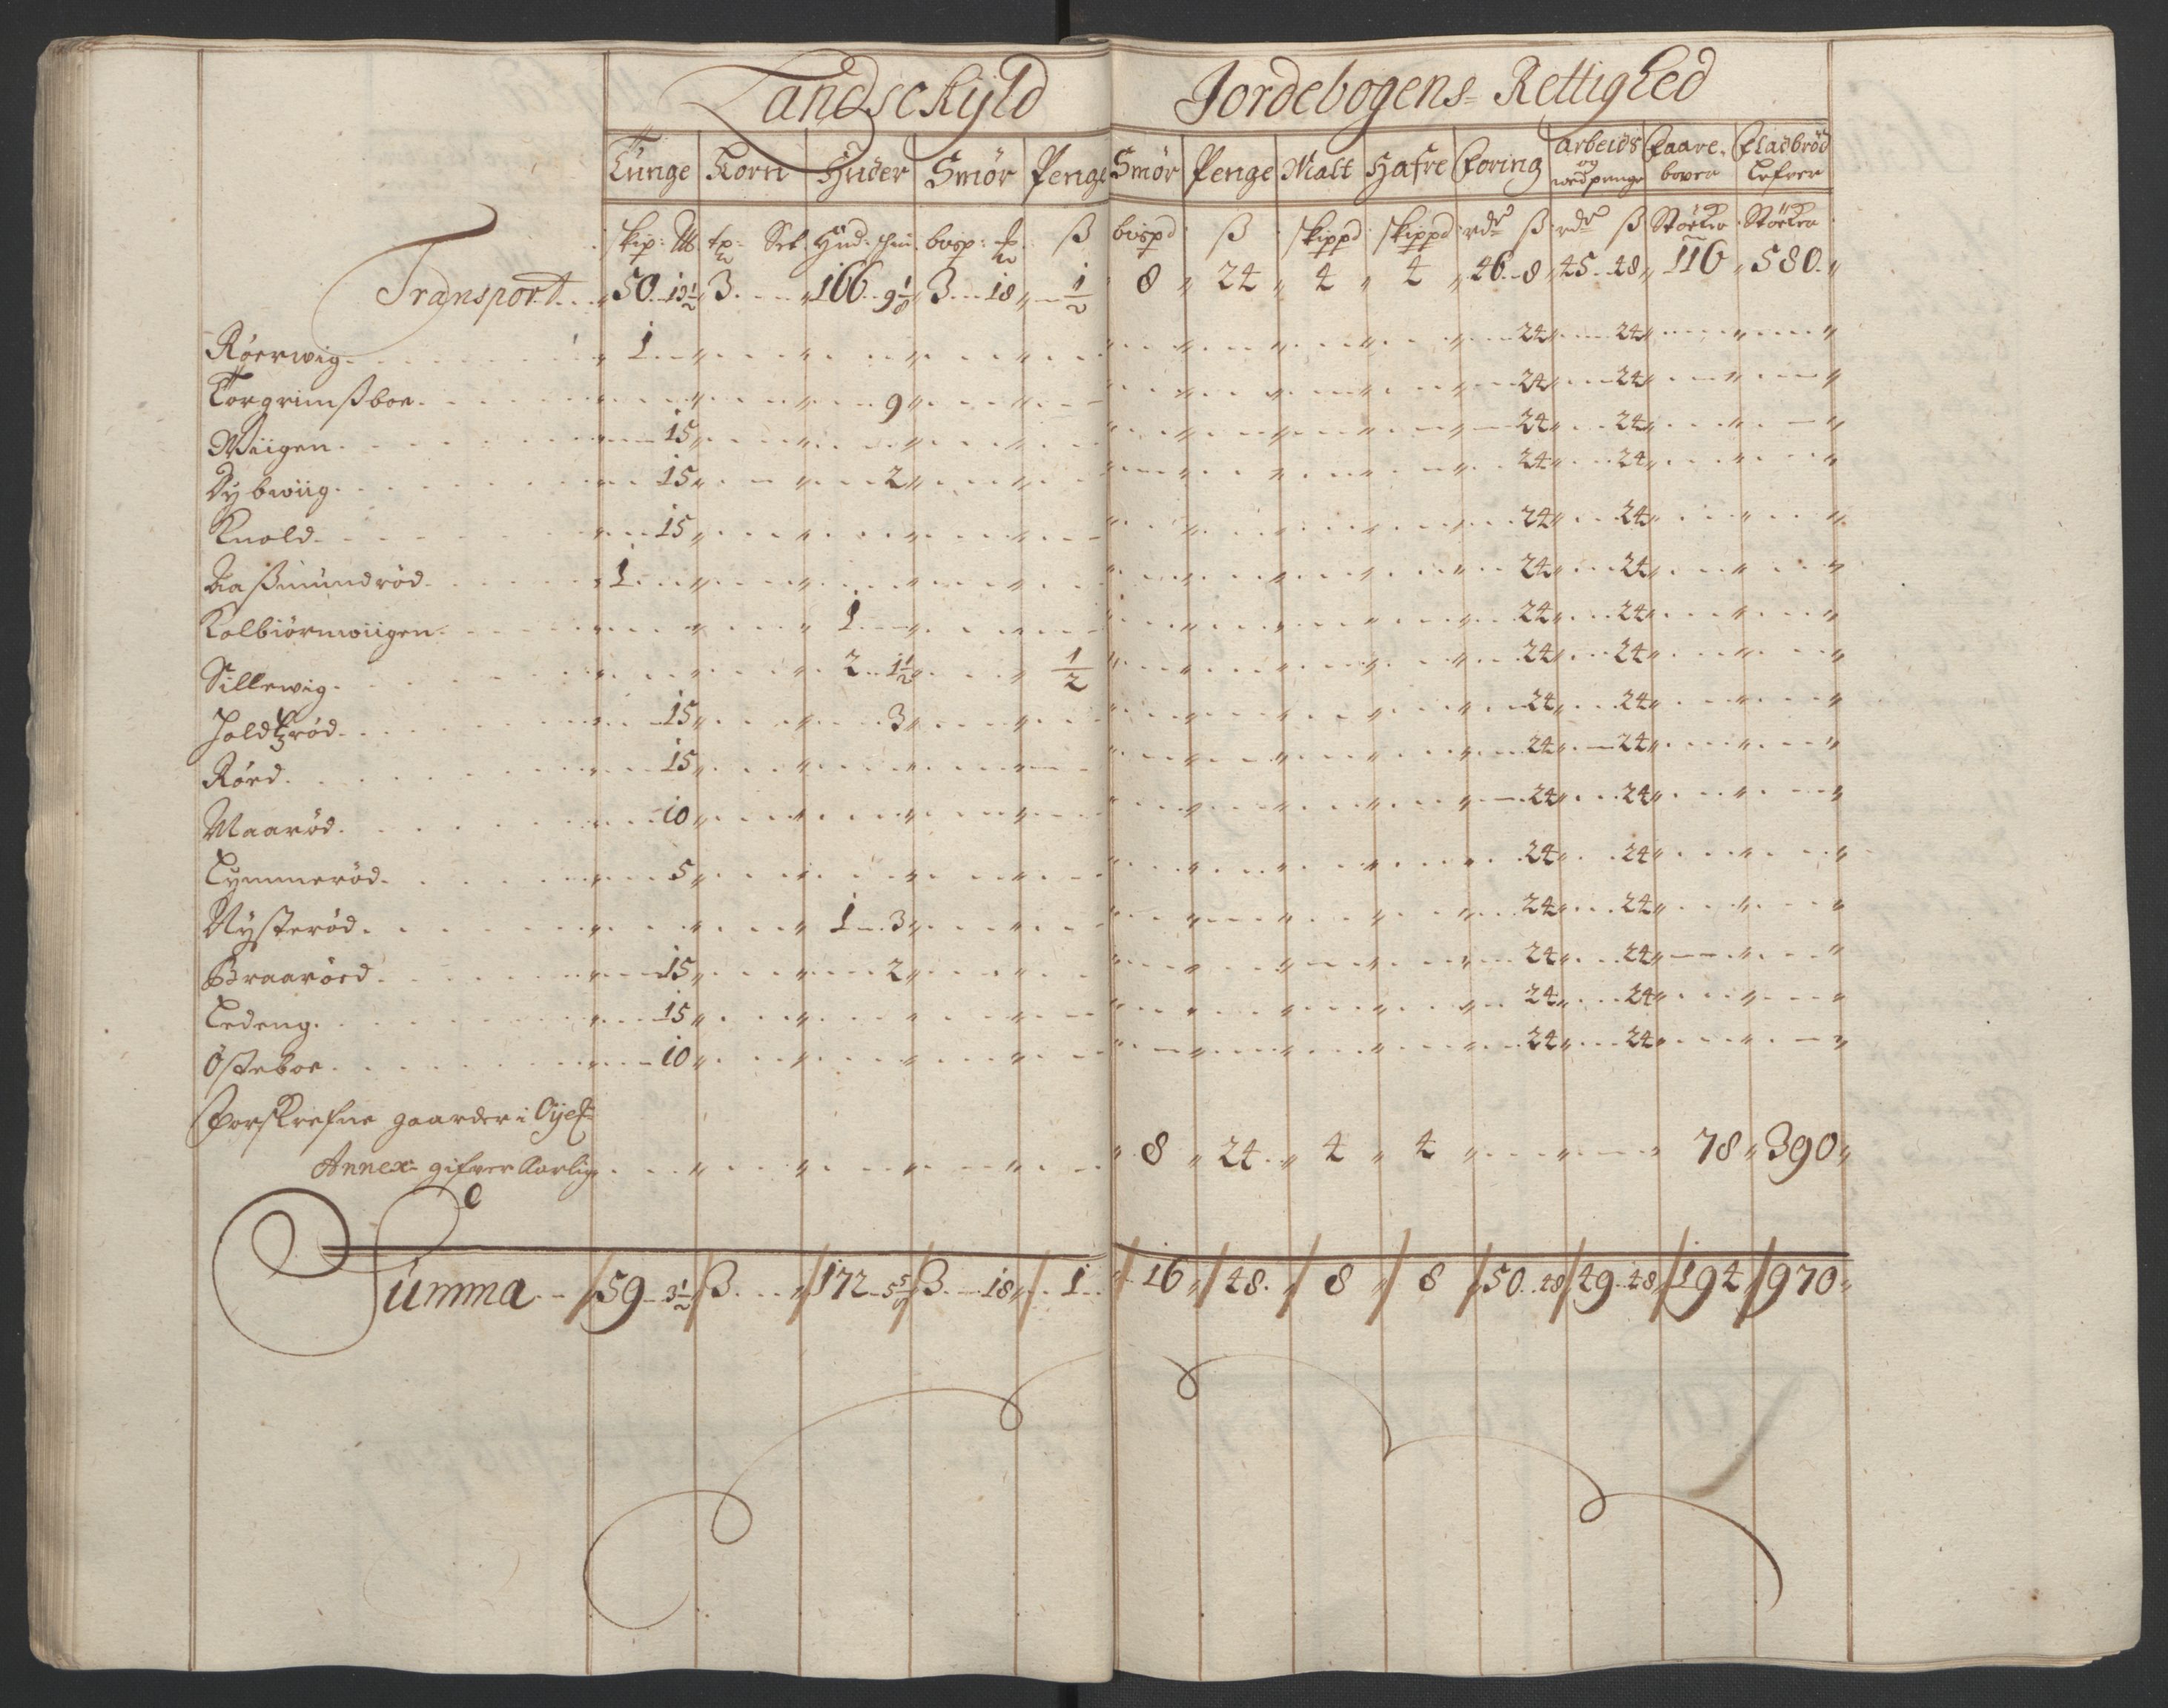 Landschyld Jordebogens= Rettighed
Tunge Korn Huder Smör Penge Smör Penge Malt Hafre Foring Arbeids og wedpenge Faare bover Fladbröd Lefver
skip: ℔ tp: Set Hud: skin bvsp: ß bvspd ß skippd skippd rdr ß rdr ß Støcker Støcker
Transport 50 13½ 3 166 9⅛ 3 18 ½ 8 24 4 4 46 8 45 48 116 580
Röerwig 1 24 24
Torgrimsßboe 9 24 24
Wiigen 15 24 24
Dybwiig 15 2 24 24
Knold 15 24 24
Aaßmundröd 1 24 24
Kolbiörnwiigen 1 24 24
Sillewig 2 1½ ½ 24 24
Holdtzröd 15 3 24 24
Röed 15 24 24
Maaröd 10 24 24
Lymmeröd 5 24 24
Nysteröd 1 3 24 24
Braaröed 15 2 24 24
Ledeng 15 24 24
Östeboe 10 24 24
Forskrefne gaarder i Öjest=
Annex= gifver Aarlig 8 24 4 4 78 390
Summa 59 3½ 3 172 5⅝ 3 18 1 16 48 8 8 50 48 49 48 194 970